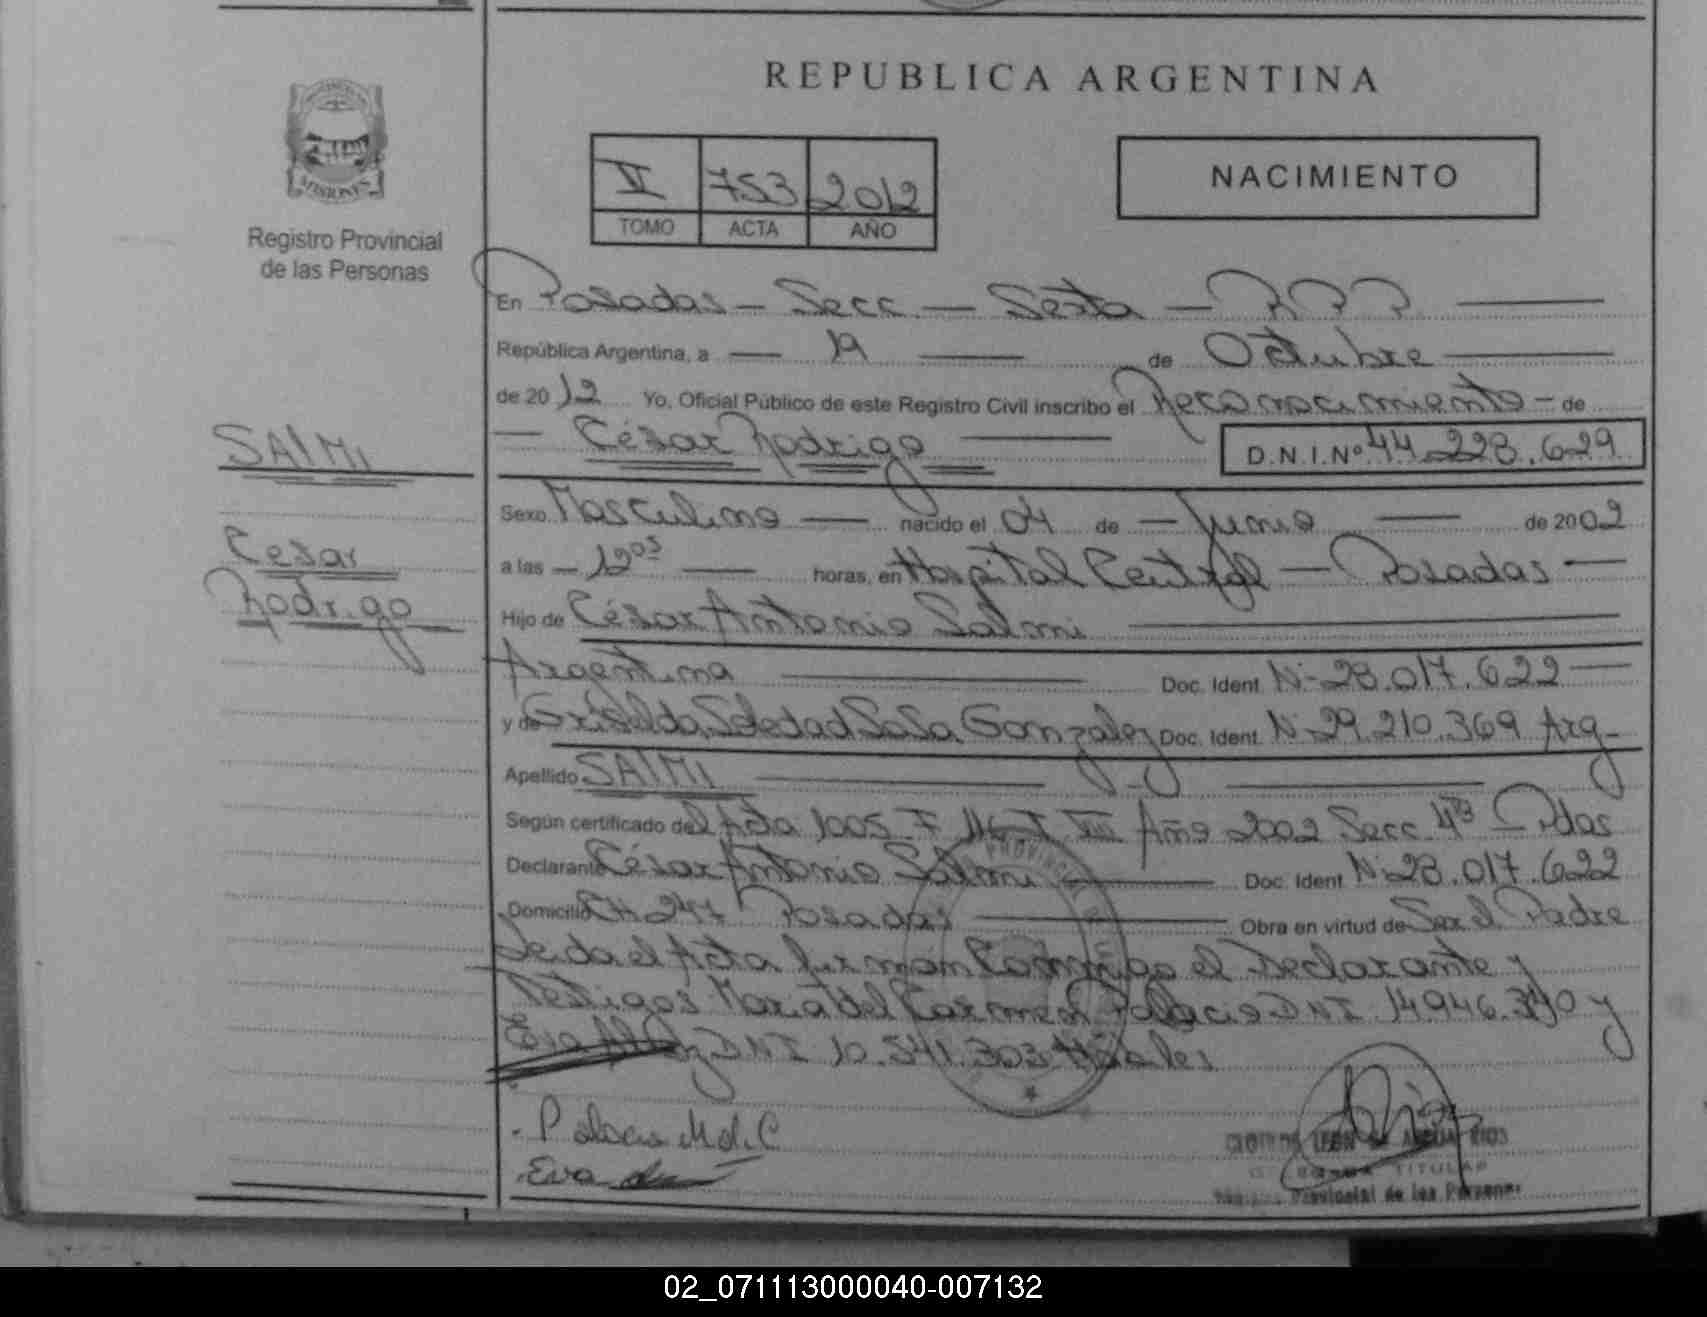 REPUBLICA ARGENTINA
MISIONES
Registro Provincial
de las Personas
VI 753 2012
TOMO ACTA AÑO
NACIMIENTO
En Posadas - Secc - Sexta - R P P
República Argentina, a 19 de Octubre
de 2012 Yo, Oficial Público de este Registro Civil inscribo el Reconocimiento - de
César Rodrigo D.N.I.Nº 44.228.629
SAIMI
Cesar
Rodrigo
Sexo Masculino nacido el 04 de Junio de 2002
a las 12 05 horas, en Hospital Central - Posadas
Hijo de César Antonio Saimi
Argentina Doc. Ident. Nº 28.017.622
y de Griselda Soledad Sosa Gonzalez Doc. Ident. Nº 29.210.369 Arg
Apellido SAIMI
Según certificado del Acta 1005 F T VIII Año 2002 Secc 4ta Pdas
Declarante César Antonio Saimi Doc. Ident. Nº 28.017.622
Domicilio CH 247 Posadas Obra en virtud de Ser el Padre
Leida el Acta firman Conmigo el Declarante y
Testigos María del Carmen Palacio DNI 14.946.340 y
Eva DNI 10.541.303 Hábiles
Palacio M d. C
Eva
TITULAR
Provincial de las Personas
02_071113000040-007132